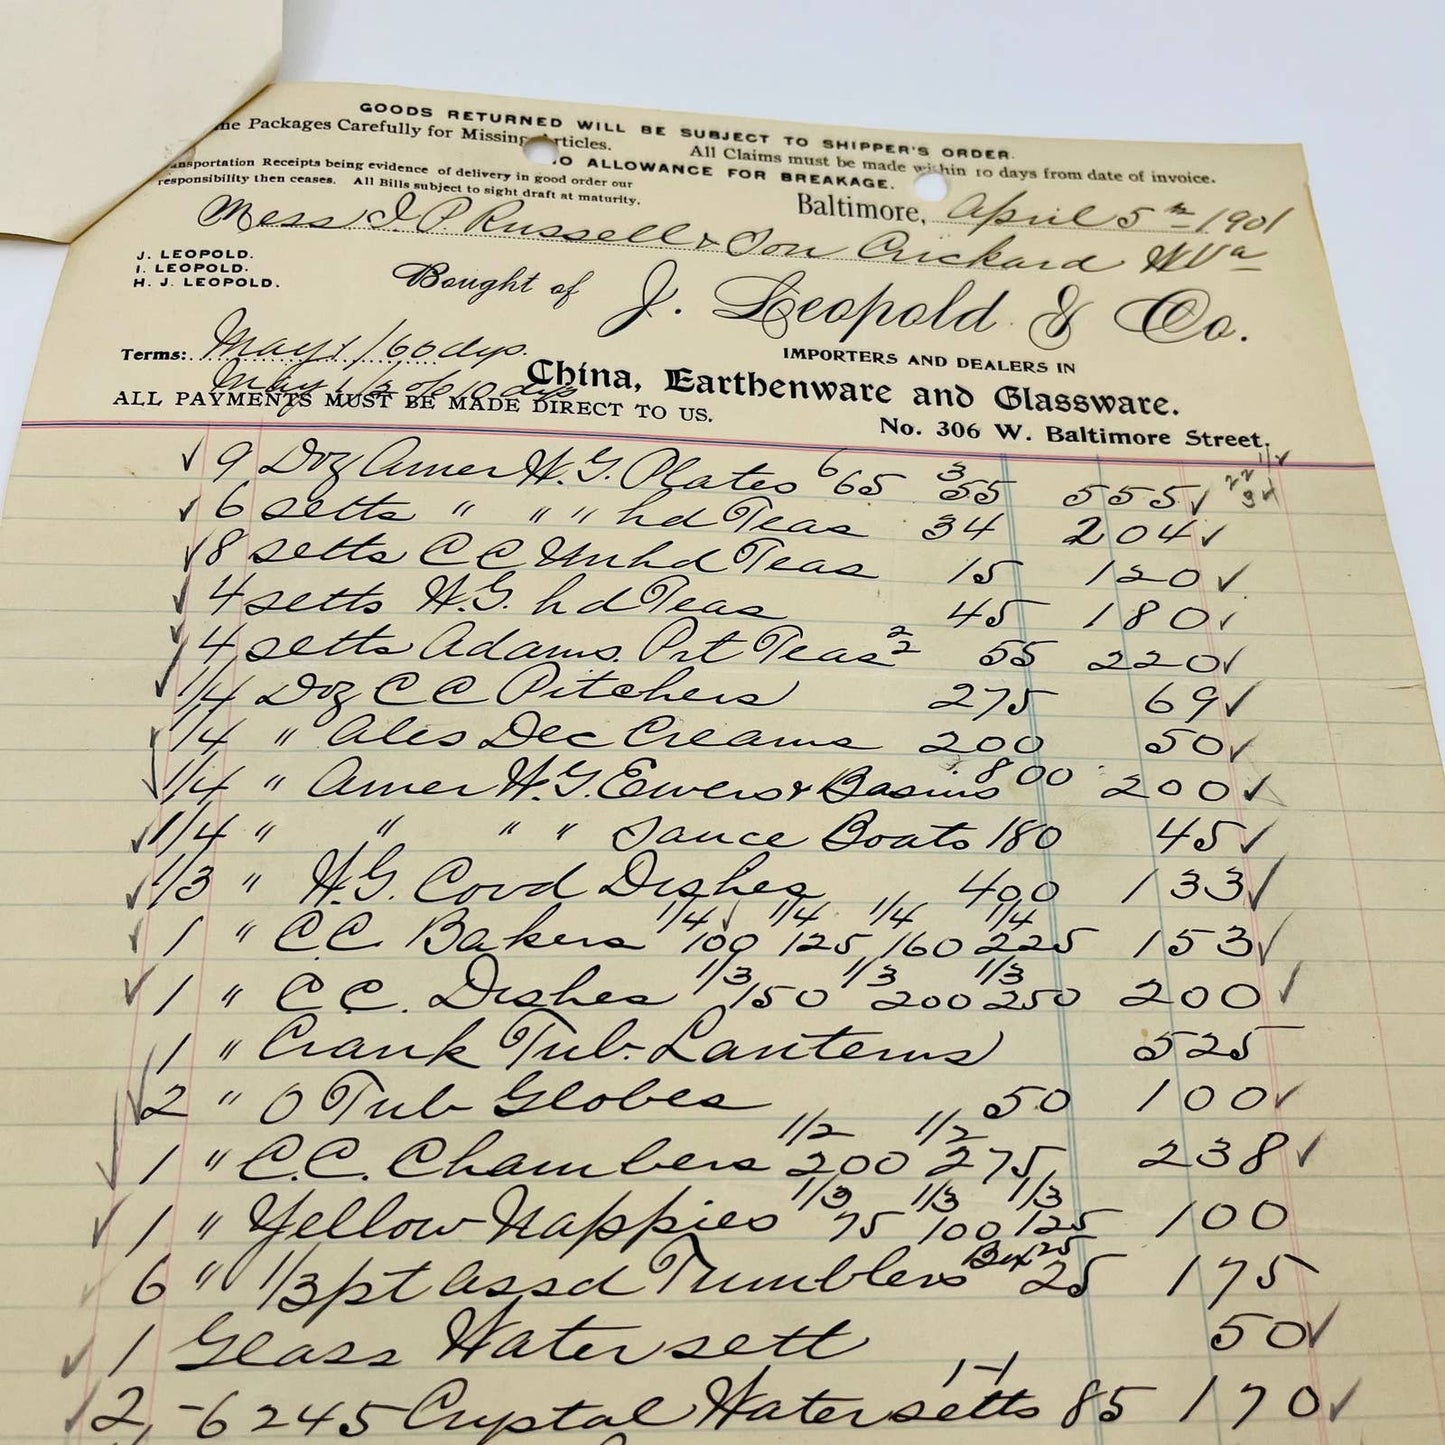 GOODS RETURNED WILL BE SUBJECT TO SHIPPER'S ORDER.
Packages Carefully for Missing Articles. All Claims must be made within 10 days from date of invoice.
NO ALLOWANCE FOR BREAKAGE.
Transportation Receipts being evidence of delivery in good order our
responsibility then ceases. All Bills subject to sight draft at maturity.
Baltimore, April 5th 1901
Mess J. P. Russell & Son Crickard W Va
J. LEOPOLD.
I. LEOPOLD.
H. J. LEOPOLD.
Bought of J. Leopold & Co.
IMPORTERS AND DEALERS IN
Terms: May 1/60 dys.
May 1/ 10 dys
China, Earthenware and Glassware.
ALL PAYMENTS MUST BE MADE DIRECT TO US.
No. 306 W. Baltimore Street.
9 Doz Amer W.G. Plates 6 65 3 55 555
6 setts " " " hd Teas 34 204
8 setts CC Unhd Teas 15 120
4 setts W.G. hd Teas 45 180
4 setts Adams Prt Teas 2/2 55 220
1/4 Doz CC Pitchers 275 69
1/4 " Ales Dec Creams 200 50
1/4 " Amer W.G. Ewers & Basins 800 200
1/4 " " " " Sauce Boats 180 45
1/3 " W.G. Covd Dishes 400 133
1 " C.C. Bakers 1/4 100 1/4 125 1/4 160 1/4 225 153
1 " C.C. Dishes 1/3 150 1/3 200 1/3 250 200
1 " Crank Tub. Lanterns 525
2 " O Tub Globes 50 100
1 " C.C. Chambers 1/2 200 1/2 275 238
1 " Yellow Nappies 1/3 75 1/3 100 1/3 125 100
6 " 1/3 pt assd Tumblers Box 25 25 175
1 Glass Water sett 50
2, -6245 Crystal Water setts 1-1 85 170